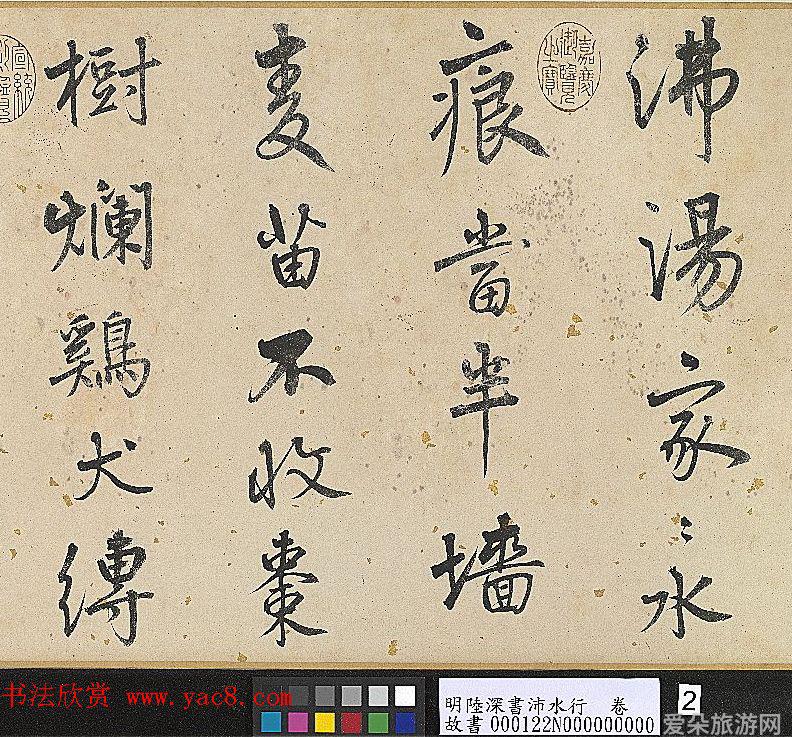 沸湯家〻水
痕當半墻
麦苗不收棗
樹爛鷄犬縛
嘉慶御覽之寶
书法欣赏 www.yac8.com
明陸深書沛水行 卷
故書000122N000000000
2
爱朵旅游网